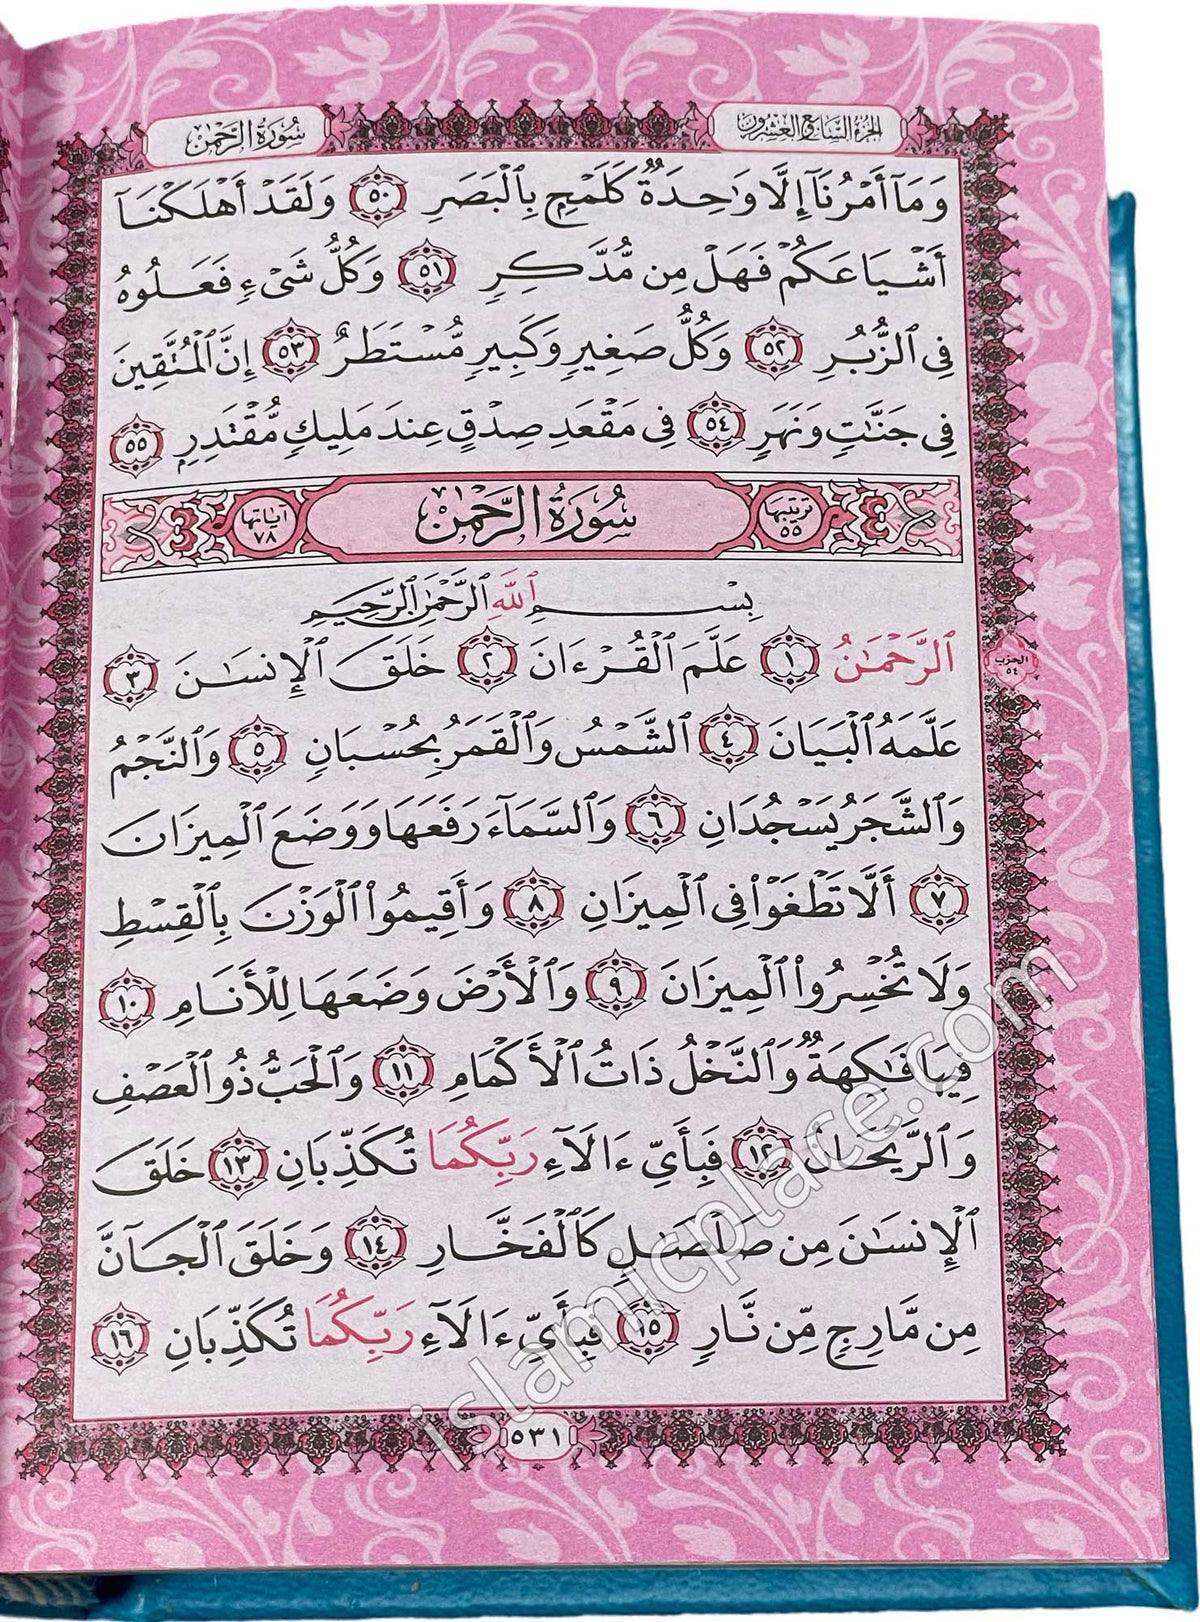 سُورَةُ الرَّحْمٰن
الجُزْءُ السَّابِعُ وَالعِشْرُون
وَمَآ أَمْرُنَآ إِلَّا وَٰحِدَةٌ كَلَمْحٍۭ بِٱلْبَصَرِ ٥٠ وَلَقَدْ أَهْلَكْنَآ
أَشْيَاعَكُمْ فَهَلْ مِن مُّدَّكِرٍ ٥١ وَكُلُّ شَىْءٍ فَعَلُوهُ
فِى ٱلزُّبُرِ ٥٢ وَكُلُّ صَغِيرٍ وَكَبِيرٍ مُّسْتَطَرٌ ٥٣ إِنَّ ٱلْمُتَّقِينَ
فِى جَنَّٰتٍ وَنَهَرٍ ٥٤ فِى مَقْعَدِ صِدْقٍ عِندَ مَلِيكٍ مُّقْتَدِرٍۭ ٥٥
ترتيبها ٥٥ سُورَةُ الرَّحْمٰن آياتها ٧٨
بِسْمِ ٱللَّهِ ٱلرَّحْمَٰنِ ٱلرَّحِيمِ
ٱلرَّحْمَٰنُ ١ عَلَّمَ ٱلْقُرْءَانَ ٢ خَلَقَ ٱلْإِنسَٰنَ ٣
عَلَّمَهُ ٱلْبَيَانَ ٤ ٱلشَّمْسُ وَٱلْقَمَرُ بِحُسْبَانٍ ٥ وَٱلنَّجْمُ
وَٱلشَّجَرُ يَسْجُدَانِ ٦ وَٱلسَّمَآءَ رَفَعَهَا وَوَضَعَ ٱلْمِيزَانَ
٧ أَلَّا تَطْغَوْا۟ فِى ٱلْمِيزَانِ ٨ وَأَقِيمُوا۟ ٱلْوَزْنَ بِٱلْقِسْطِ
وَلَا تُخْسِرُوا۟ ٱلْمِيزَانَ ٩ وَٱلْأَرْضَ وَضَعَهَا لِلْأَنَامِ ١٠
فِيهَا فَٰكِهَةٌ وَٱلنَّخْلُ ذَاتُ ٱلْأَكْمَامِ ١١ وَٱلْحَبُّ ذُو ٱلْعَصْفِ
وَٱلرَّيْحَانُ ١٢ فَبِأَىِّ ءَالَآءِ رَبِّكُمَا تُكَذِّبَانِ ١٣ خَلَقَ
ٱلْإِنسَٰنَ مِن صَلْصَٰلٍ كَٱلْفَخَّارِ ١٤ وَخَلَقَ ٱلْجَآنَّ
مِن مَّارِجٍ مِّن نَّارٍ ١٥ فَبِأَىِّ ءَالَآءِ رَبِّكُمَا تُكَذِّبَانِ ١٦
الحزب ٥٤
٥٣١
islamicplace.com